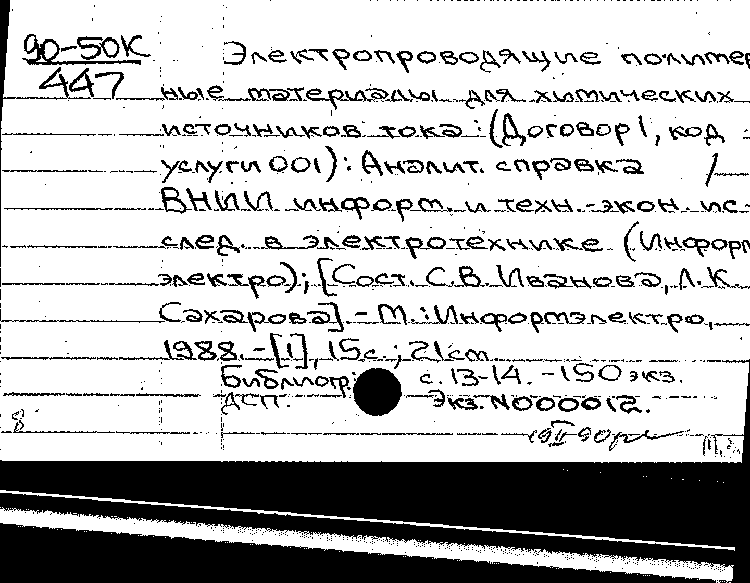 90-50К
447
Электропроводящие полимер
ные материалы для химических
источников тока: (Договор 1, код
услуги 001): Аналит. справка /
ВНИИ информ. и техн.-экон. ис-
след. в электротехнике (Информ
электро); [Сост. С.В. Иванова, Л.К.
Сахарова]. - М.: Информэлектро,
1988. - [1], 15с.; 21см.
Библиогр.: с. 13-14. - 150 экз.
ДСП. Экз. N000012.
8
19 II 90